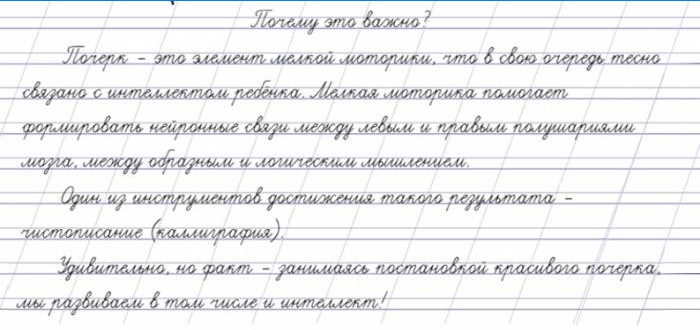 Почему это важно?
Почерк - это элемент мелкой моторики, что в свою очередь тесно
связано с интеллектом ребёнка. Мелкая моторика помогает
формировать нейронные связи между левым и правым полушариями
мозга, между образным и логическим мышлением.
Один из инструментов достижения такого результата -
чистописание (каллиграфия).
Удивительно, но факт - занимаясь постановкой красивого почерка,
мы развиваем в том числе и интеллект!